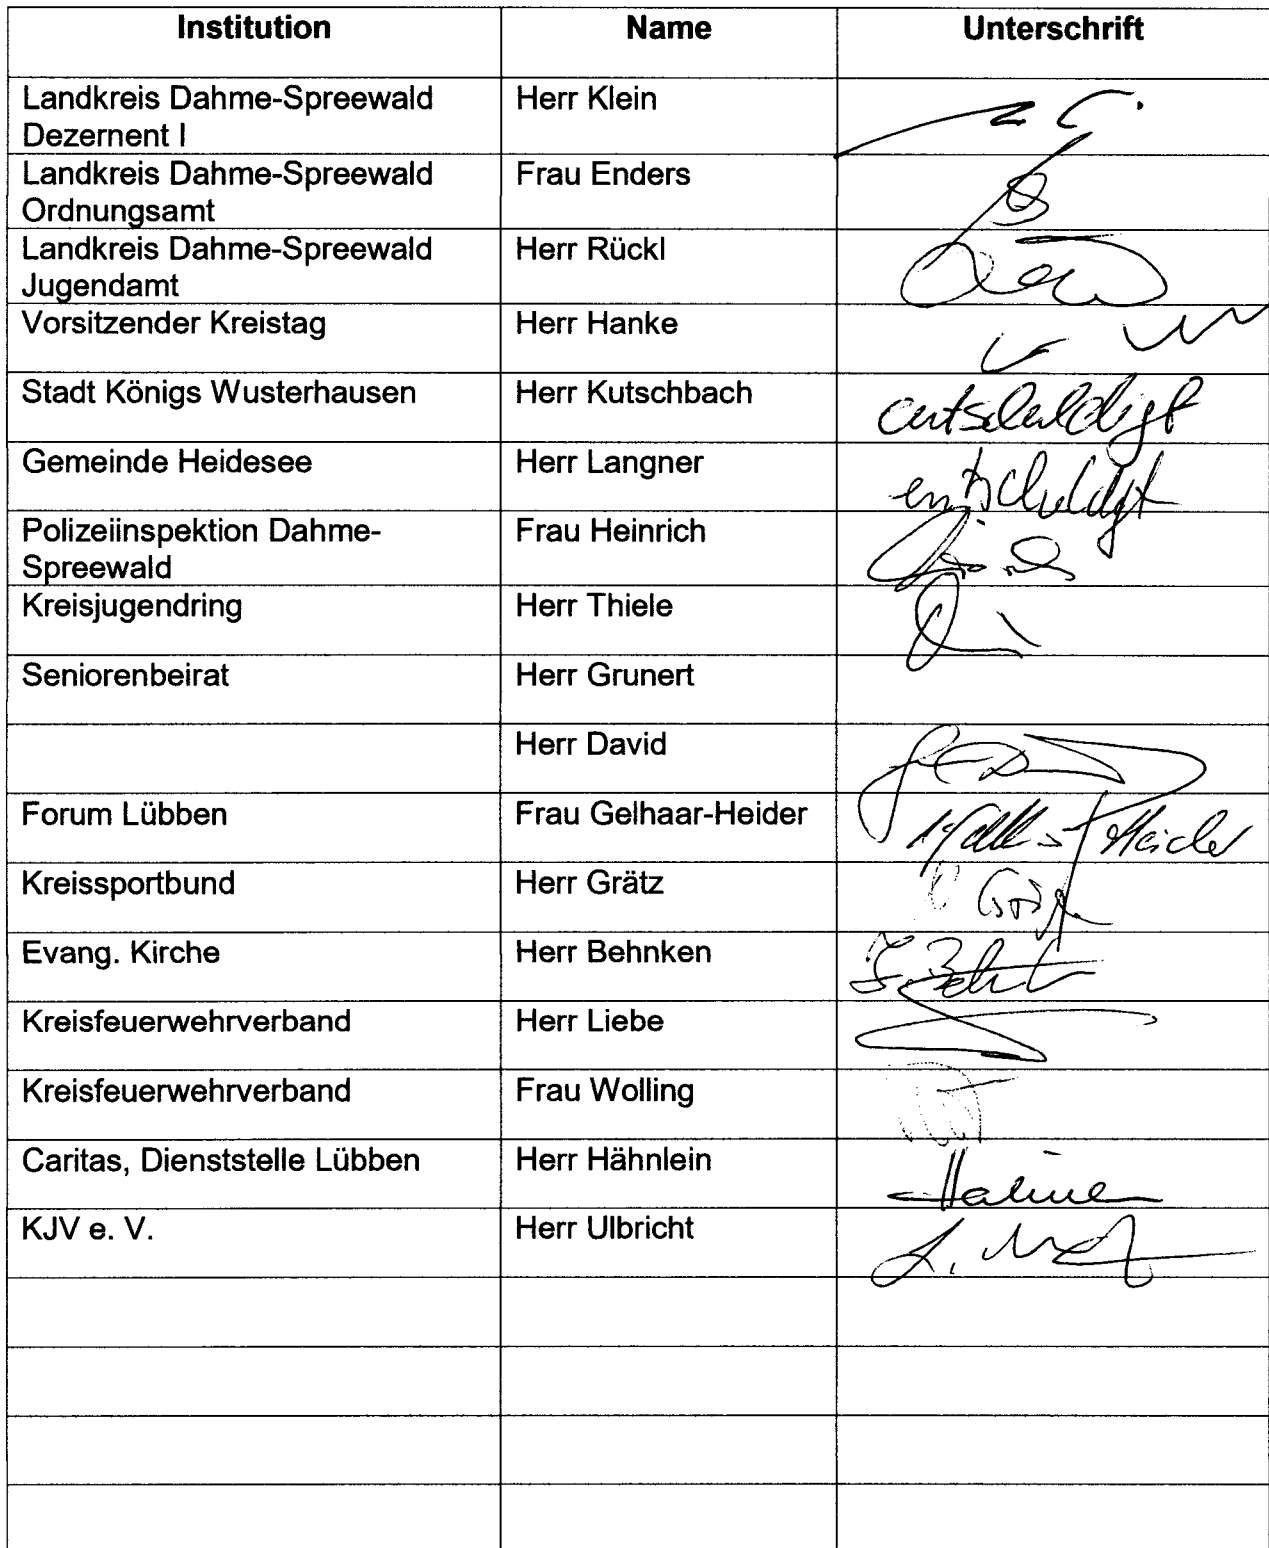 Institution Name Unterschrift
Landkreis Dahme-Spreewald Herr Klein
Dezernent I
Landkreis Dahme-Spreewald Frau Enders
Ordnungsamt
Landkreis Dahme-Spreewald Herr Rückl
Jugendamt
Vorsitzender Kreistag Herr Hanke
Stadt Königs Wusterhausen Herr Kutschbach entschuldigt
Gemeinde Heidesee Herr Langner entschuldigt
Polizeiinspektion Dahme- Frau Heinrich
Spreewald
Kreisjugendring Herr Thiele
Seniorenbeirat Herr Grunert
Herr David
Forum Lübben Frau Gelhaar-Heider
Kreissportbund Herr Grätz
Evang. Kirche Herr Behnken
Kreisfeuerwehrverband Herr Liebe
Kreisfeuerwehrverband Frau Wolling
Caritas, Dienststelle Lübben Herr Hähnlein
KJV e. V. Herr Ulbricht